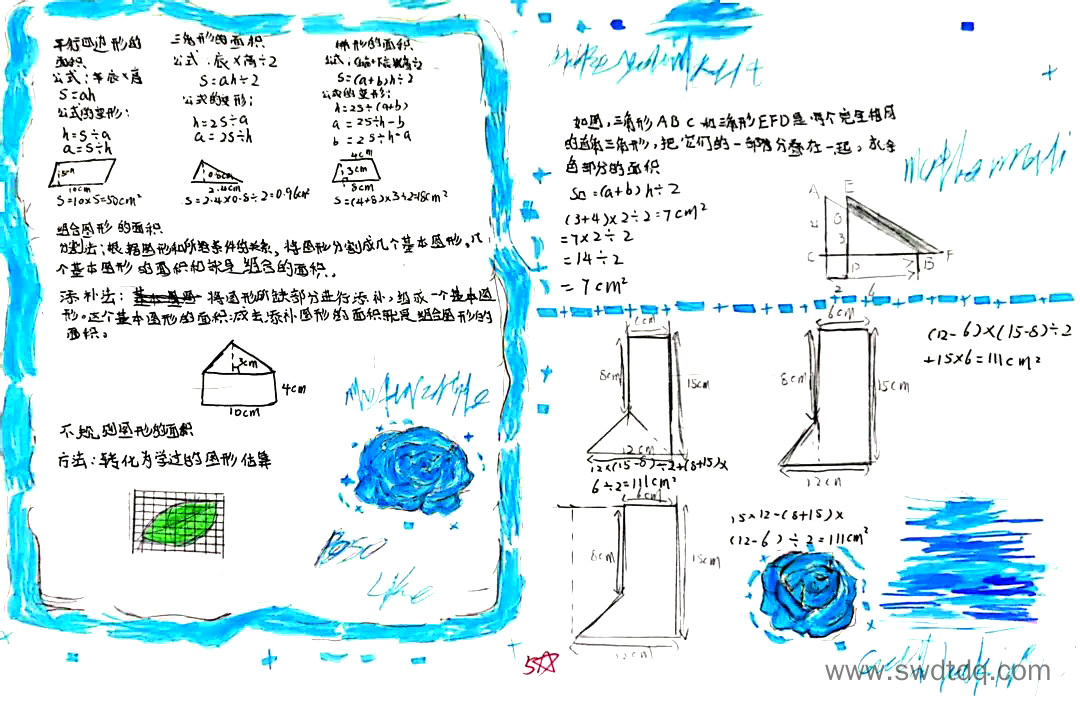 平行四边形的
面积
公式:底×高
S=ah
公式的变形:
h=S÷a
a=S÷h
5cm
10cm
S=10×5=50cm²
三角形的面积
公式:底×高÷2
S=ah÷2
公式的变形:
h=2S÷a
a=2S÷h
0.8cm
2.4cm
S=2.4×0.8÷2=0.96cm²
梯形的面积
S=(a+b)h÷2
公式的变形:
h=2S÷(a+b)
a=2S÷h-b
b=2S÷h-a
4cm
3cm
8cm
S=(4+8)×3÷2=18cm²
组合图形的面积
分割法:根据图形和所给条件的关系,将图形分割成几个基本图形,几
个基本图形的面积和就是组合的面积。
添补法:将图形所缺部分进行添补,组成一个基本图
形。这个基本图形的面积减去添补图形的面积就是组合图形的
面积。
3cm
4cm
10cm
不规则图形的面积
方法:转化为学过的图形估算
Like
如图,三角形ABC和三角形EFD是两个完全相同
的直角三角形,把它们的一部分叠在一起,求涂
色部分的面积
=(a+b)h÷2
(3+4)×2÷2=7cm²
=7×2÷2
=14÷2
=7cm²
A
E
4
3
C
D
B
F
2
6cm
8cm
15cm
12cm
12×(15-8)÷2+(8+15)×
6÷2=111cm²
6cm
8cm
15cm
12cm
(12-6)×(15-8)÷2
+15×6=111cm²
6cm
8cm
15cm
12cm
15×12-(8+15)×
(12-6)÷2=111cm²
5☆
www.swdtdq.com